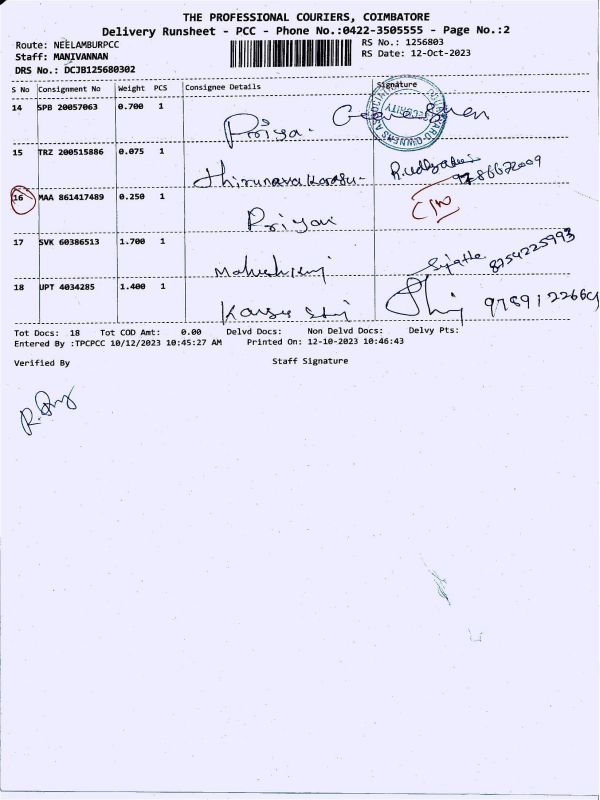 THE PROFESSIONAL COURIERS, COIMBATORE
Delivery Runsheet - PCC - Phone No.:0422-3505555 - Page No.:2
Route: NEELAMBURPCC RS No.: 1256803
Staff: MANIVANNAN RS Date: 12-Oct-2023
DRS No.: DCJB125680302
S No Consignment No Weight PCS Consignee Details Signature
14 SPB 20057063 0.700 1 Priya.
15 TRZ 200515886 0.075 1 thirunavukarasu
16 MAA 861417489 0.250 1 Priyan
17 SVK 60386513 1.700 1 8754225993
18 UPT 4034285 1.400 1
Tot Docs: 18 Tot COD Amt: 0.00 Delvd Docs: Non Delvd Docs: Delvy Pts:
Entered By :TPCPCC 10/12/2023 10:45:27 AM Printed On: 12-10-2023 10:46:43
Verified By Staff Signature